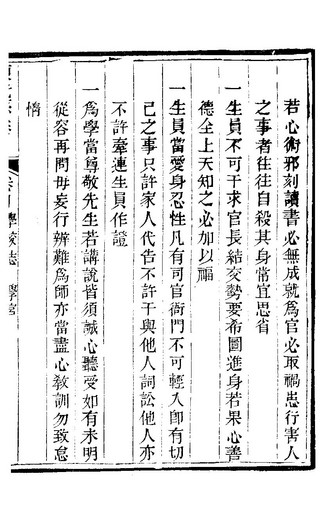 若心術邪刻讀書必無成就為官必取禍患行害人
之事者往往自殺其身常宜思省
一生員不可干求官長結交勢要希圖進身若果心善
德全上天知之必加以福
一生員當愛身忍性凡有司官衙門不可輕入即有切
己之事只許家人代告不許干與他人詞訟他人亦
不許牽連生員作證
一為學當尊敬先生若講說皆須誠心聽受如有未明
從容再問毋妄行辨難為師亦當盡心教訓勿致怠
惰
學校志 學宮